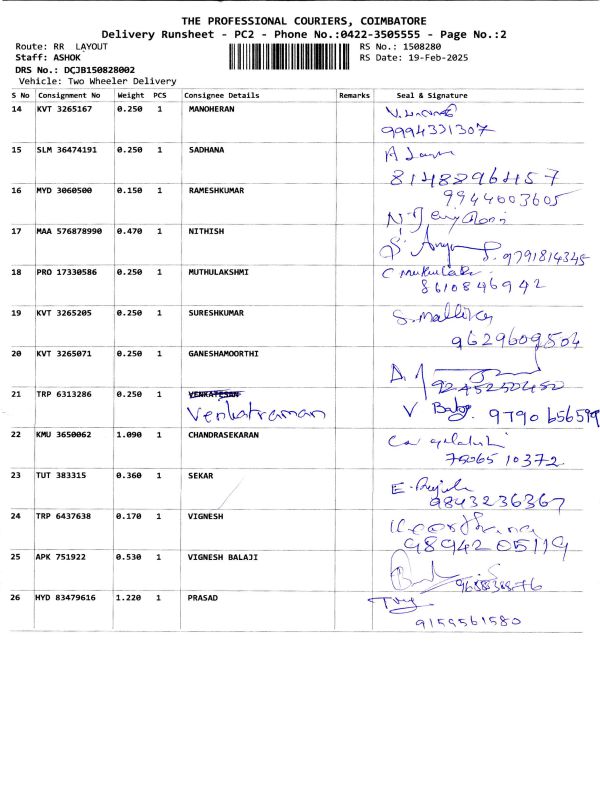 THE PROFESSIONAL COURIERS, COIMBATORE
Delivery Runsheet - PC2 - Phone No.:0422-3505555 - Page No.:2
Route: RR LAYOUT RS No.: 1508280
Staff: ASHOK RS Date: 19-Feb-2025
DRS No.: DCJB150828002
Vehicle: Two Wheeler Delivery
S No Consignment No Weight PCS Consignee Details Remarks Seal & Signature
14 KVT 3265167 0.250 1 MANOHERAN
9994331307
15 SLM 36474191 0.250 1 SADHANA
8148296457
16 MYD 3060500 0.150 1 RAMESHKUMAR 9944003605
17 MAA 576878990 0.470 1 NITHISH
9791814345
18 PRO 17330586 0.250 1 MUTHULAKSHMI
8610846942
19 KVT 3265205 0.250 1 SURESHKUMAR S. Mallika
9629609504
20 KVT 3265071 0.250 1 GANESHAMOORTHI
9245250450
21 TRP 6313286 0.250 1 VENKATESAN
Venkatraman V Balaji 9790656599
22 KMU 3650062 1.090 1 CHANDRASEKARAN
7506510372
23 TUT 383315 0.360 1 SEKAR
9843236367
24 TRP 6437638 0.170 1 VIGNESH
9894205119
25 APK 751922 0.530 1 VIGNESH BALAJI
26 HYD 83479616 1.220 1 PRASAD
9159561580